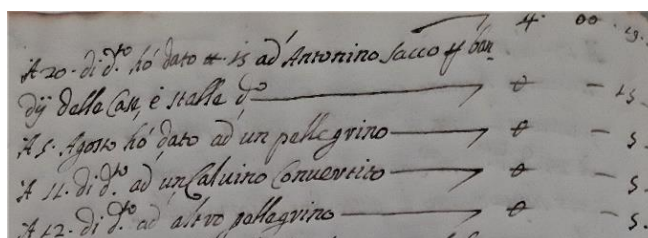 4. 00 19.
A 20. di d.to hò dato # 15 ad Antonino Sacco
dij delle Case, è stalle d.o 0 – 15.
A 5. Agosto hò dato ad un pellegrino 0 – 5.
A 11. di d.to ad un Calvino Convertito 0 – 5.
A 12. di d.to ad altro pellegrino 0 – 5.